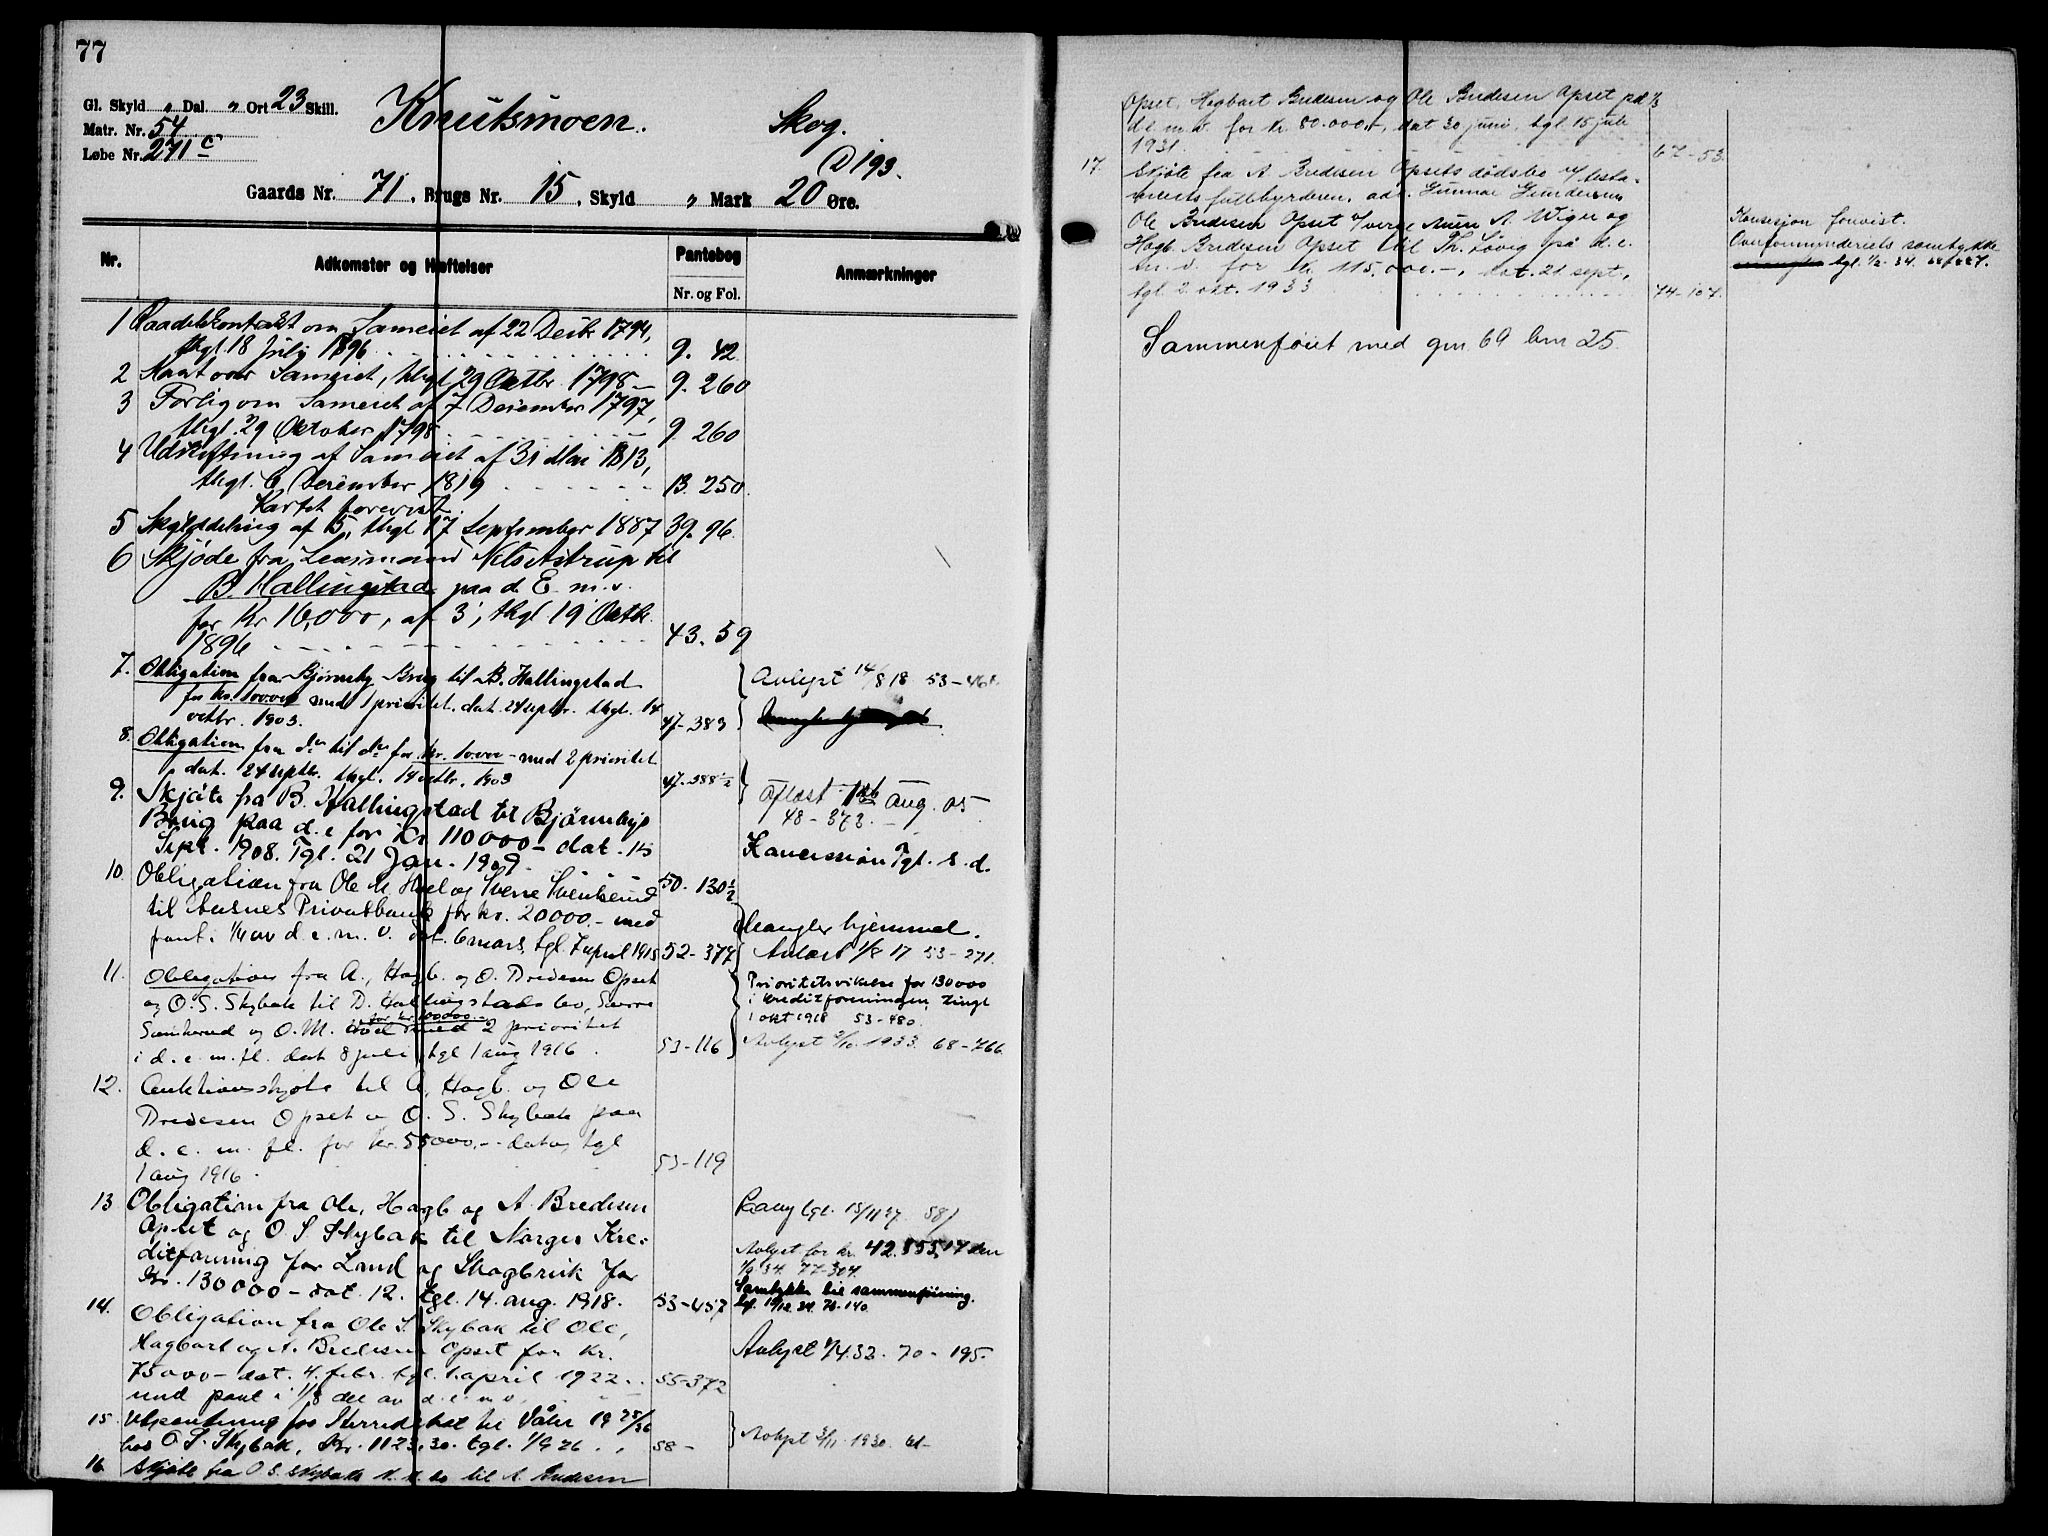 77
Gl. Skyld „ Dal. „ Ort 23 Skill.
Matr. Nr. 54
Løbe Nr. 271 c
Knutsmoen.
Skog.
D 193.
Gaards Nr. 71, Brugs Nr. 15, Skyld „ Mark 20 Øre.
Nr.
Adkomster og Hæftelser
Pantebog
Nr. og Fol.
Anmærkninger
1 Raadekontrakt om Sameiet af 22 Decbr 1794,
thgl. 18 July 1796 9. 42
2 over Sameiet, thgl 29 Octbr. 1798 9. 260
3 Forlig om Sameiet af 7 December 1797,
thgl. 29 Oktober 1798 9. 260
4 Udskiftning af Sameiet af 31 Mai 1813,
thgl. 6 December 1819 13. 250
Kartet forevist.
5 Skylddeling af 15, thgl 17 September 1887 39. 96
6 Skjøde fra Nils Astrup til
B. Hallingstad paa d. E. m. v.
for Kr 16,000, af 3, thgl 19 Octbr.
1896 43. 59
7. Obligation fra Bjørneby Brug til B. Hallingstad
for kr. 100000 med 1 prioritet. dat. 24 septbr. thgl. 14
octbr. 1903. 47-383
Avlyst 14/8 18 53-461
8. Obligation fra do til do for kr. 10000 - med 2 prioritet
dat. 24 septbr. thgl. 14 octbr. 1903 47-388 1/2
Aflæst 1ste Aug. 05
48-373.
9. Skjøte fra B. Hallingstad til Bjørneby
Brug paa d. e for Kr 110000 - dat. 15
Sept. 1908. Tgl. 21 Jan. 1909. 50-130 1/2
Koncession Tgl. s. d.
10. Obligation fra Ole M. Hoel og Sverre Svenkerud
til Aasnes Privatbank for kr. 20000.- med
pant i 1/4 av d. e. m. v. dat. 6 mars, tgl. 7 april 1915 52-377
Mangler hjemmel.
Avlæst 1/8 17 53-271.
11. Obligation fra A., Hagb. og O. Bredesen Opset
og O. S. Skybak til B. Hallingstads bo, Sverre
Svenkerud og O. M. Hoel med 2 prioritet
for kr. 100000.-
i d. e. m. fl. dat 8 juli, tgl 1 aug 1916. 53-116
Prioritetsvikelse for 130000
i kreditforeningen, tingl
1 okt 1918 53-480.
Avlyst 2/10. 1933. 68-766.
12. Auktionsskjøte til A, Hagb. og Ole
Bredesen Opset og O. S. Skybak paa
d. e. m. fl. for kr. 55000.- dato, tgl
1 aug 1916. 53-119
13 Obligation fra Ole, Hagb og A Bredesen
Opset og O. S. Skybak til Norges Kre-
ditforening for Land og Skogbruk for
Kr. 130000 - dat. 12. tgl. 14. aug. 1918. 53-457
tgl. 15/11 27. 58/
Avlyst for kr. 42.853,17 den
34. 77-304.
Samtykke til sammenføining.
tgl. 19/12 34. 76-140
14. Obligation fra Ole S. Skybak til Ole,
Hagbart og A. Bredesen Opset for Kr.
75000 - dat. 4. febr. tgl. 1. april 1922 55-372
med pant i 1/3 del av d. e. m v.
Avlyst 1/4.32. 70-195.
15. Utpantning for Herredskat til Våler 1925/26
hos O. S. Skybak, Kr. 1123,30. tgl. 1/9 26. 58-
Avlyst 3/11 1930
16 Skjøte fra O S. Skybak til A. Bredesen
Opset, Hagbart Bredesen og Ole Bredesen Opset på 1/3
d.e. m. v. for Kr. 80.000,-, dat 30 juni, tgl. 15 juli
1931. 67-53.
17 Skjøte fra A Bredesen Opsets dødsbo v/ testa-
mentsfullbyrderen, adv. Gunnar Gundersen
Ole Bredesen Opset v/ verge A. Wiger og
Hagb. Bredesen Opset til Th. Løvig på d. e.
m. v. for Kr. 115.000.-, dat. 21 sept,
tgl. 2. okt. 1933 74-107.
Konsesjon forevist.
Overformynderiets samtykke
tgl. 1/2. 34.
Sammenføiet med gnr 69 bnr 25.